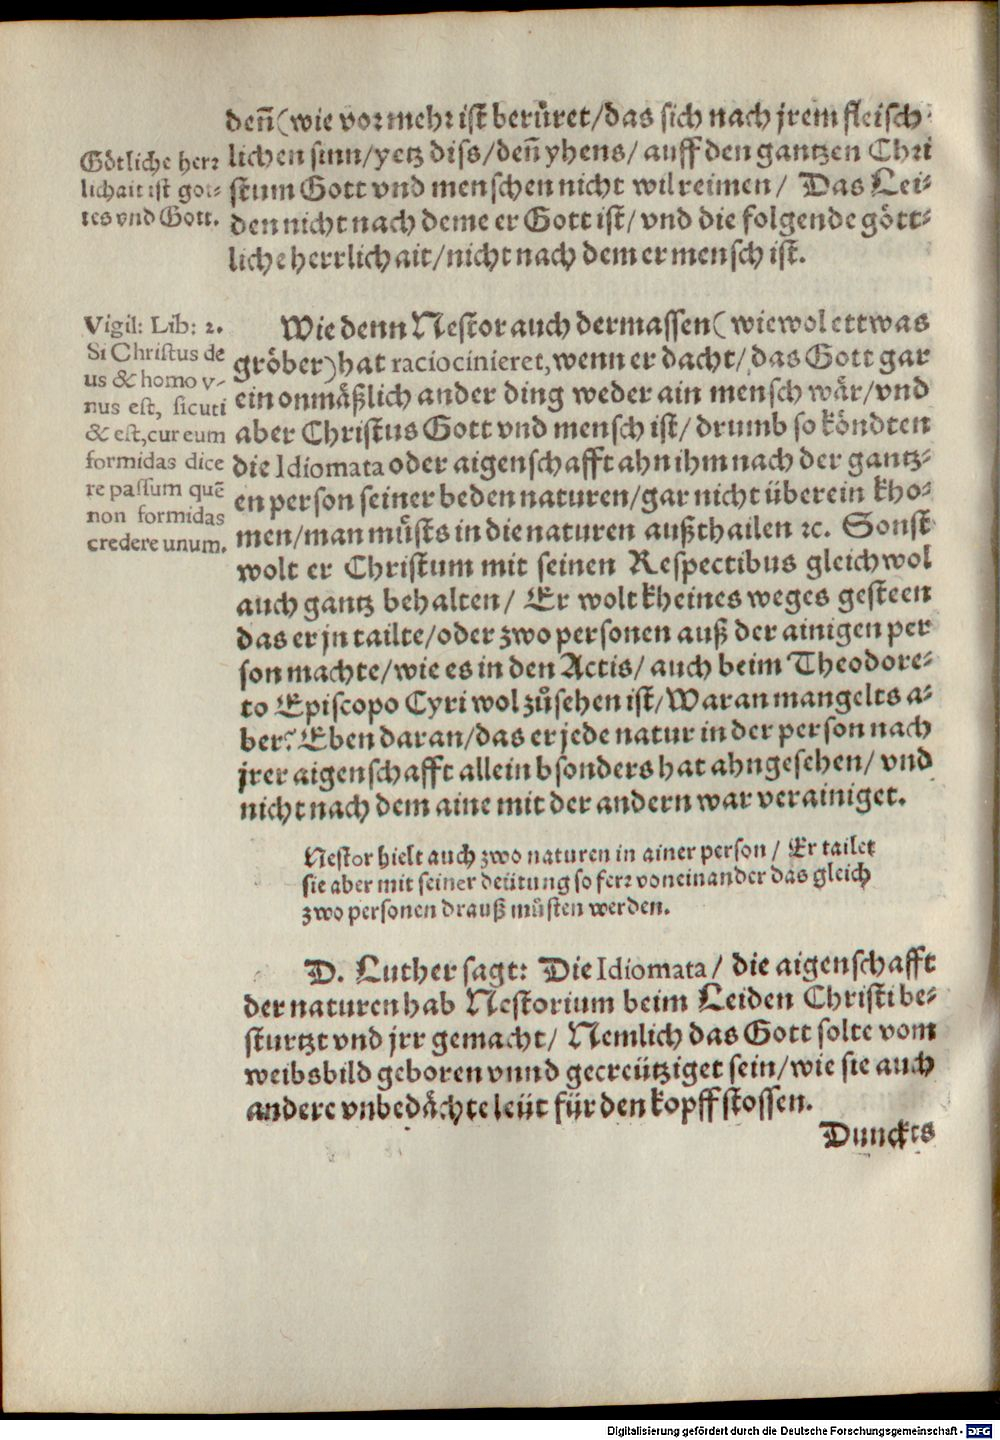 deñ (wie vor mehr ist berůret/das sich nach jrem fleisch-
lichen sinn/yetz diss/deñ yhens/auff den gantzen Chri
stum Gott vnd menschen nicht wil reimen/ Das Lei-
den nicht nach deme er Gott ist/vnd die folgende gött-
liche herrlichait/nicht nach dem er mensch ist.
Götliche herr
lichait ist got-
tes vnd Gott.
Wie denn Nestor auch dermassen (wiewol ettwas
gröber) hat raciocinieret, wenn er dacht/das Gott gar
ein onmäßlich ander ding weder ain mensch wär/vnd
aber Christus Gott vnd mensch ist/drumb so köndten
die Idiomata oder aigenschafft ahn ihm nach der gantz-
en person seiner beden naturen/gar nicht überein kho-
men/man müsts in die naturen außthailen ꝛc. Sonst
wolt er Christum mit seinen Respectibus gleichwol
auch gantz behalten/ Er wolt kheines weges gesteen
das er jn tailte/oder zwo personen auß der ainigen per
son machte/wie es in den Actis/auch beim Theodore-
to Episcopo Cyri wol zůsehen ist/Waran mangelts a-
ber? Eben daran/das er jede natur in der person nach
jrer aigenschafft allein bsonders hat ahngesehen/vnd
nicht nach dem aine mit der andern war verainiget.
Vigil: Lib: 2.
Si Christus de
us & homo v-
nus est, sicuti
& est, cur eum
formidas dice
re passum quē
non formidas
credere unum.
Nestor hielt auch zwo naturen in ainer person/ Er tailet
sie aber mit seiner deütung so ferr voneinander das gleich
zwo personen drauß müsten werden.
D. Luther sagt: Die Idiomata/ die aigenschafft
der naturen hab Nestorium beim Leiden Christi be-
sturtzt vnd jrr gemacht/ Nemlich das Gott solte vom
weibsbild geboren vnnd gecreütziget sein/wie sie auch
andere vnbedächte leüt für den kopff stossen.
Dunckts
Digitalisierung gefördert durch die Deutsche Forschungsgemeinschaft - DFG